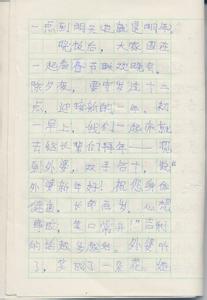 一点到明天也就是明年，
晚饭后，大家围在
一起看春节联欢晚会，
除夕夜，要守岁过十二
点，迎接新的一年，初
一早上，我们一起床就
去给长辈们拜年——
到外婆，双手合十，说“
外婆新年好！祝您身体
健康，长命百岁，心想
事成，笑口常开！”吉利
的话越多越好，外婆听
了，笑成了一朵花，给